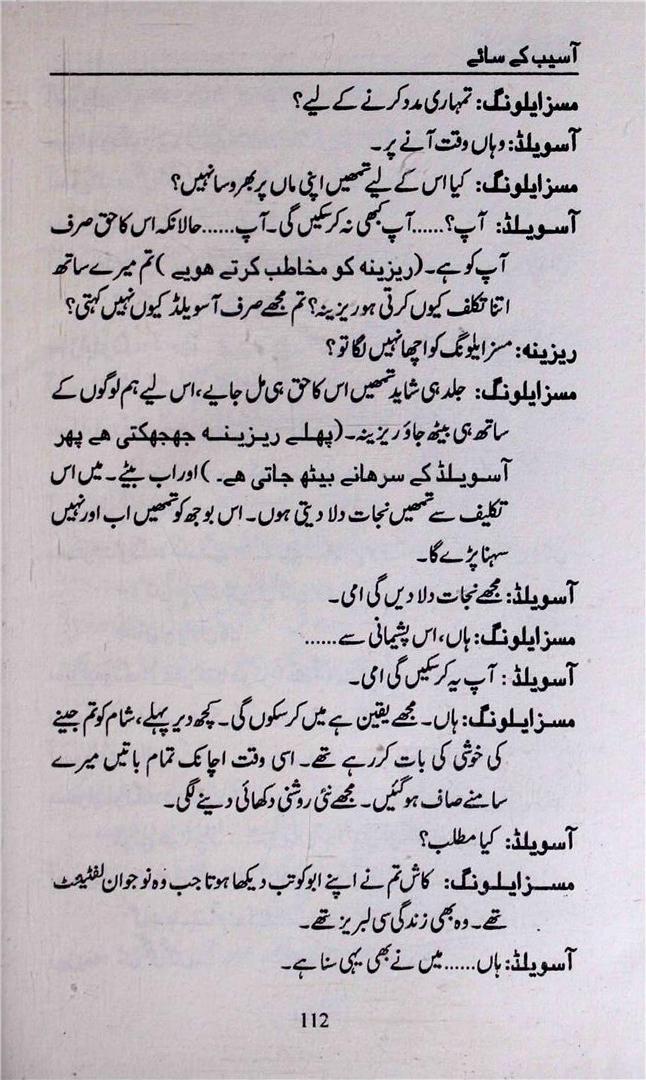 آسیب کے سائے
مسز ایلونگ: تمہاری مدد کرنے کے لیے؟
آسویلڈ: وہاں وقت آنے پر۔
مسز ایلونگ: کیا اس کے لیے تمھیں اپنی ماں پر بھروسا نہیں؟
آسویلڈ: آپ؟......آپ کبھی نہ کر سکیں گی۔ آپ......حالانکہ اس کا حق صرف
آپ کو ہے۔ (ریزینہ کو مخاطب کرتے ھویے) تم میرے ساتھ
اتنا تکلف کیوں کرتی ہو ریزینہ؟ تم مجھے صرف آسویلڈ کیوں نہیں کہتی؟
ریزینہ: مسز ایلونگ کو اچھا نہیں لگا تو؟
مسز ایلونگ: جلد ہی شاید تمھیں اس کا حق ہی مل جایے، اس لیے ہم لوگوں کے
ساتھ ہی بیٹھ جاؤ ریزینہ۔ (پھلے ریزینہ جھجھکتی ھے پھر
آسویلڈ کے سرھانے بیٹھ جاتی ھے۔) اور اب بیٹے۔ میں اس
تکلیف سے تمھیں نجات دلا دیتی ہوں۔ اس بوجھ کو تمھیں اب اور نہیں
سہنا پڑے گا۔
آسویلڈ: مجھے نجات دلا دیں گی امی۔
مسز ایلونگ: ہاں، اس پشیمانی سے......
آسویلڈ: آپ یہ کر سکیں گی امی۔
مسز ایلونگ: ہاں۔ مجھے یقین ہے میں کر سکوں گی۔ کچھ دیر پہلے، شام کو تم جینے
کی خوشی کی بات کر رہے تھے۔ اسی وقت اچانک تمام باتیں میرے
سامنے صاف ہو گئیں۔ مجھے نئی روشنی دکھائی دینے لگی۔
آسویلڈ: کیا مطلب؟
مسز ایلونگ: کاش تم نے اپنے ابو کو تب دیکھا ہوتا جب وہ نوجوان لفٹیننٹ
تھے۔ وہ بھی زندگی سی لبریز تھے۔
آسویلڈ: ہاں......میں نے بھی یہی سنا ہے۔
112